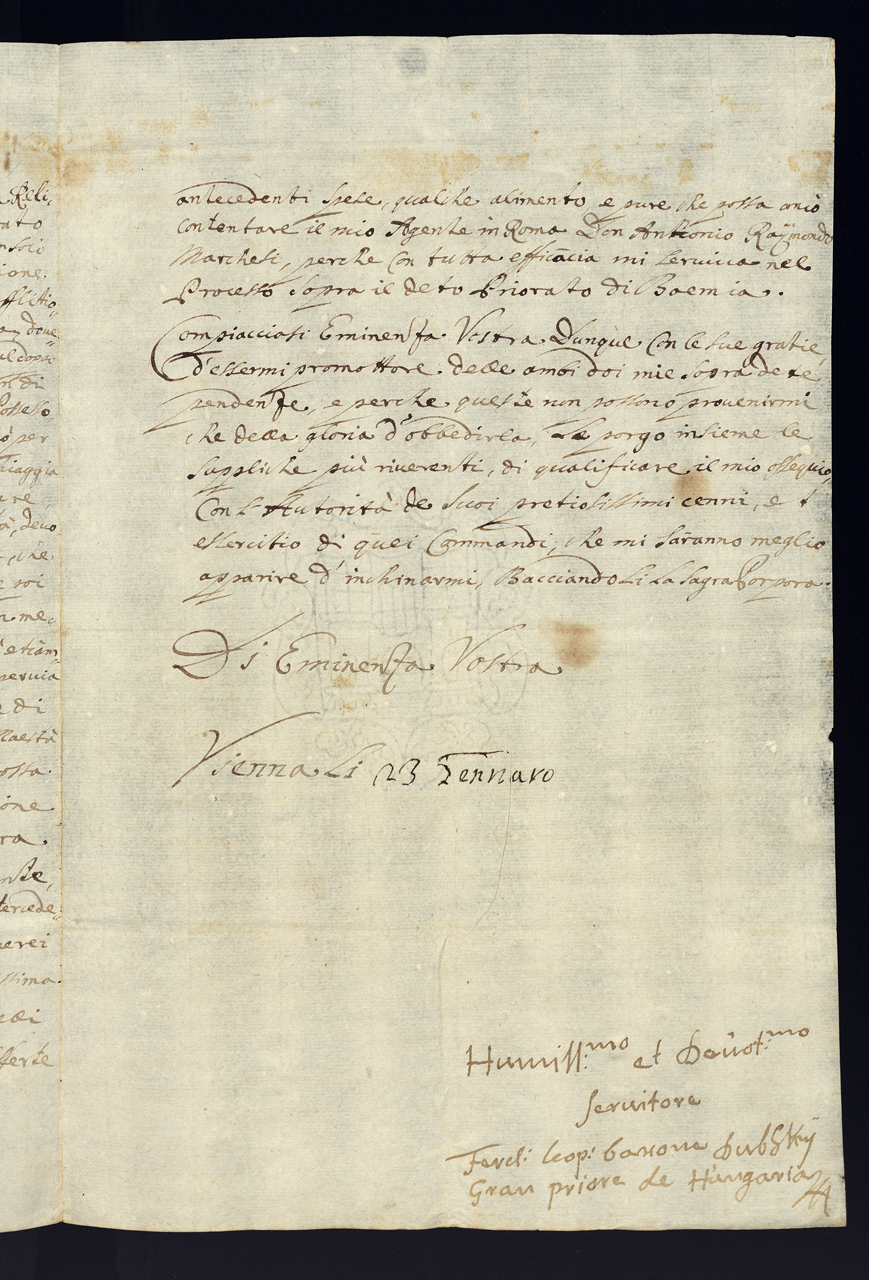 Reli,
rato
nsoli
ione.
fflitio,,
doue,,
di
Possesso
ò per
iaggia
re
tà, deuo
, che
e roi
n me,,
etiam,,
peruia
e di
Maestà
ossa
ione
ra.
nste,
tercede,,
uerei
ssima
elli
fferte
antecedenti spese, qualche alimento e pure che possa anió
Contentare il mio Agente in Roma Don Anttonio Raÿmondo
Marchesi, perche con tutta efficacia mi seruiua nel
Processo sopra il deto Priorato di Baemia.
Compiacciasi Eminenza Vostra Dunque Con le sue gratie,
d'essermi promottore delle ambi doi mie sopra dete
pendenze, e perche queste non possono prouenirmi
che della gloria d'obbedirla, Le porgo insieme le
suppliche più riuerenti, di qualificare il mio ossequio,
Con l'Autorità de suoi pretiosissimi cenni, e l
essercitio di quei Commandi, che mi saranno meglio
apparire d'inchinarmi, Bacciando Li La Sagra Porpora.
Di Eminenza Vostra
Vienna Li 23 Gennaro
Humiss:mo et Deuot:mo
seruitore
Ferd: leop: barone Dubskÿ
Gran priore de Hungaria